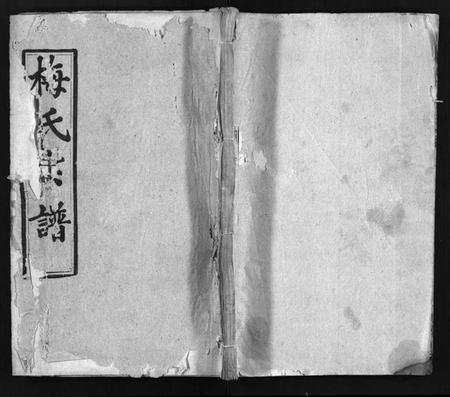 梅氏宗譜